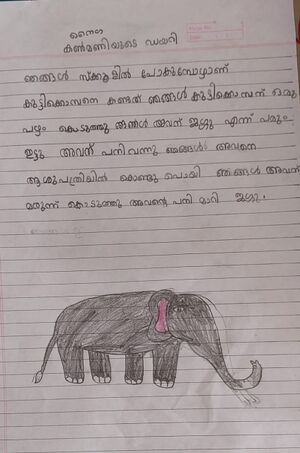 നൈറ
കൺമണിയുടെ ഡയറി
ഞങ്ങൾ സ്ക്കൂളിൽ പോകുമ്പോഴാണ്
കുട്ടിക്കൊമ്പനെ കണ്ടത് ഞങ്ങൾ കുട്ടിക്കൊമ്പന് ഒരു
പഴം കൊടുത്തു ഞങ്ങൾ അവന് ജഗ്ഗു എന്ന് പേരും
ഇട്ടു അവന് പനി വന്നു ഞങ്ങൾ അവനെ
ആശുപത്രിയിൽ കൊണ്ടു പോയി ഞങ്ങൾ അവന്
മരുന്ന് കൊടുത്തു അവന്റെ പനി മാറി ജഗ്ഗു.